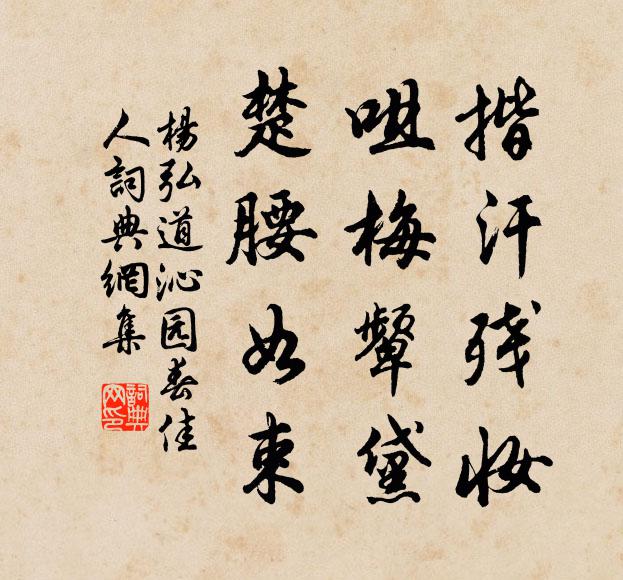 揩汗残妆
咀梅颦黛
楚腰如束
杨弘道沁园春佳
人詞典網集
詞典网印